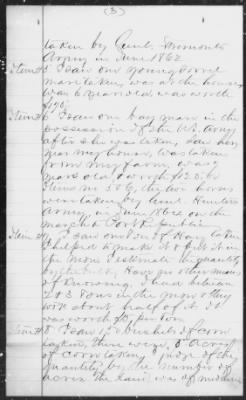 (3)
taken by Genl. Fremonts
Army in June 1862
Item # 5. I saw one young sorrel
mare taken, was at the house
was 6 years old was worth
$125.
Item # 6 I saw one bay mare in the
possession of the U.S. Army
after she was taken, saw her
near my house, was taken
from my farm, was 7
years old & worth $125.00
Items no 5 & 6, the two horses
were taken by Genl. Hunters
Army in June 1864 on the
march to
Item # 7 I saw one of Hay taken
I helped to make it & put it in
the mow I estimate the quantity
by the bulk, Have no other means
of knowing. I had between
2 & 3 tons in the mow & they
took about half of it. It
was worth per ton
Item # 8 I saw bushels of corn
taken, there were 5 Acres
of corn taken I judge of the
quantity by the number of
acres the land was of medium